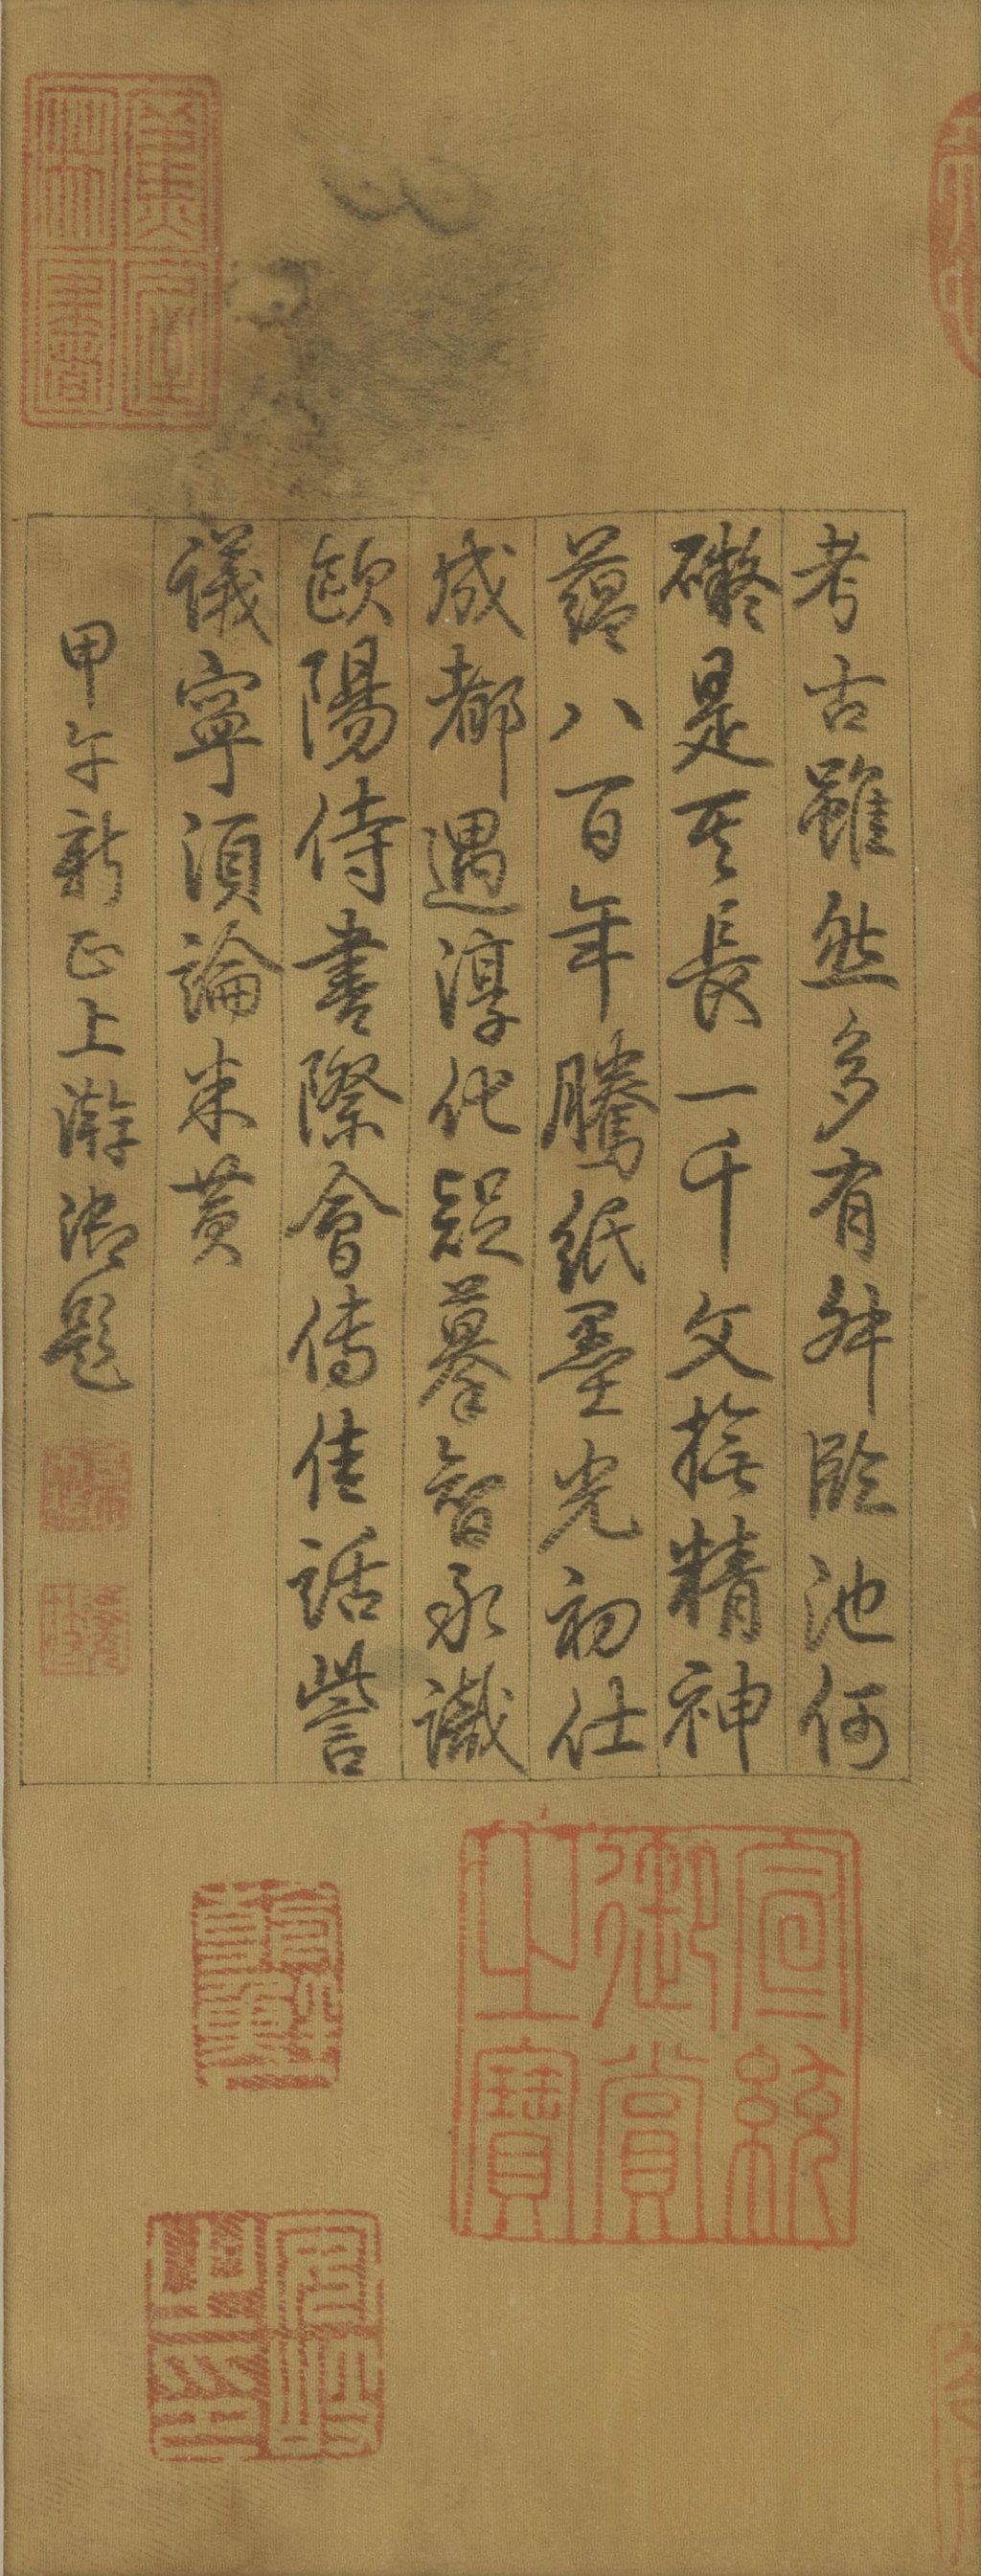 考古雖然多有舛臨池何
礙是其長一千文撫精神
蘊八百年騰紙墨光初仕
成都遇淳化疑摹智永識
歐陽侍書際會傳佳話訾
議寧須論米黃
甲午新正上澣御題
宣統御賞之寶
安岐之印